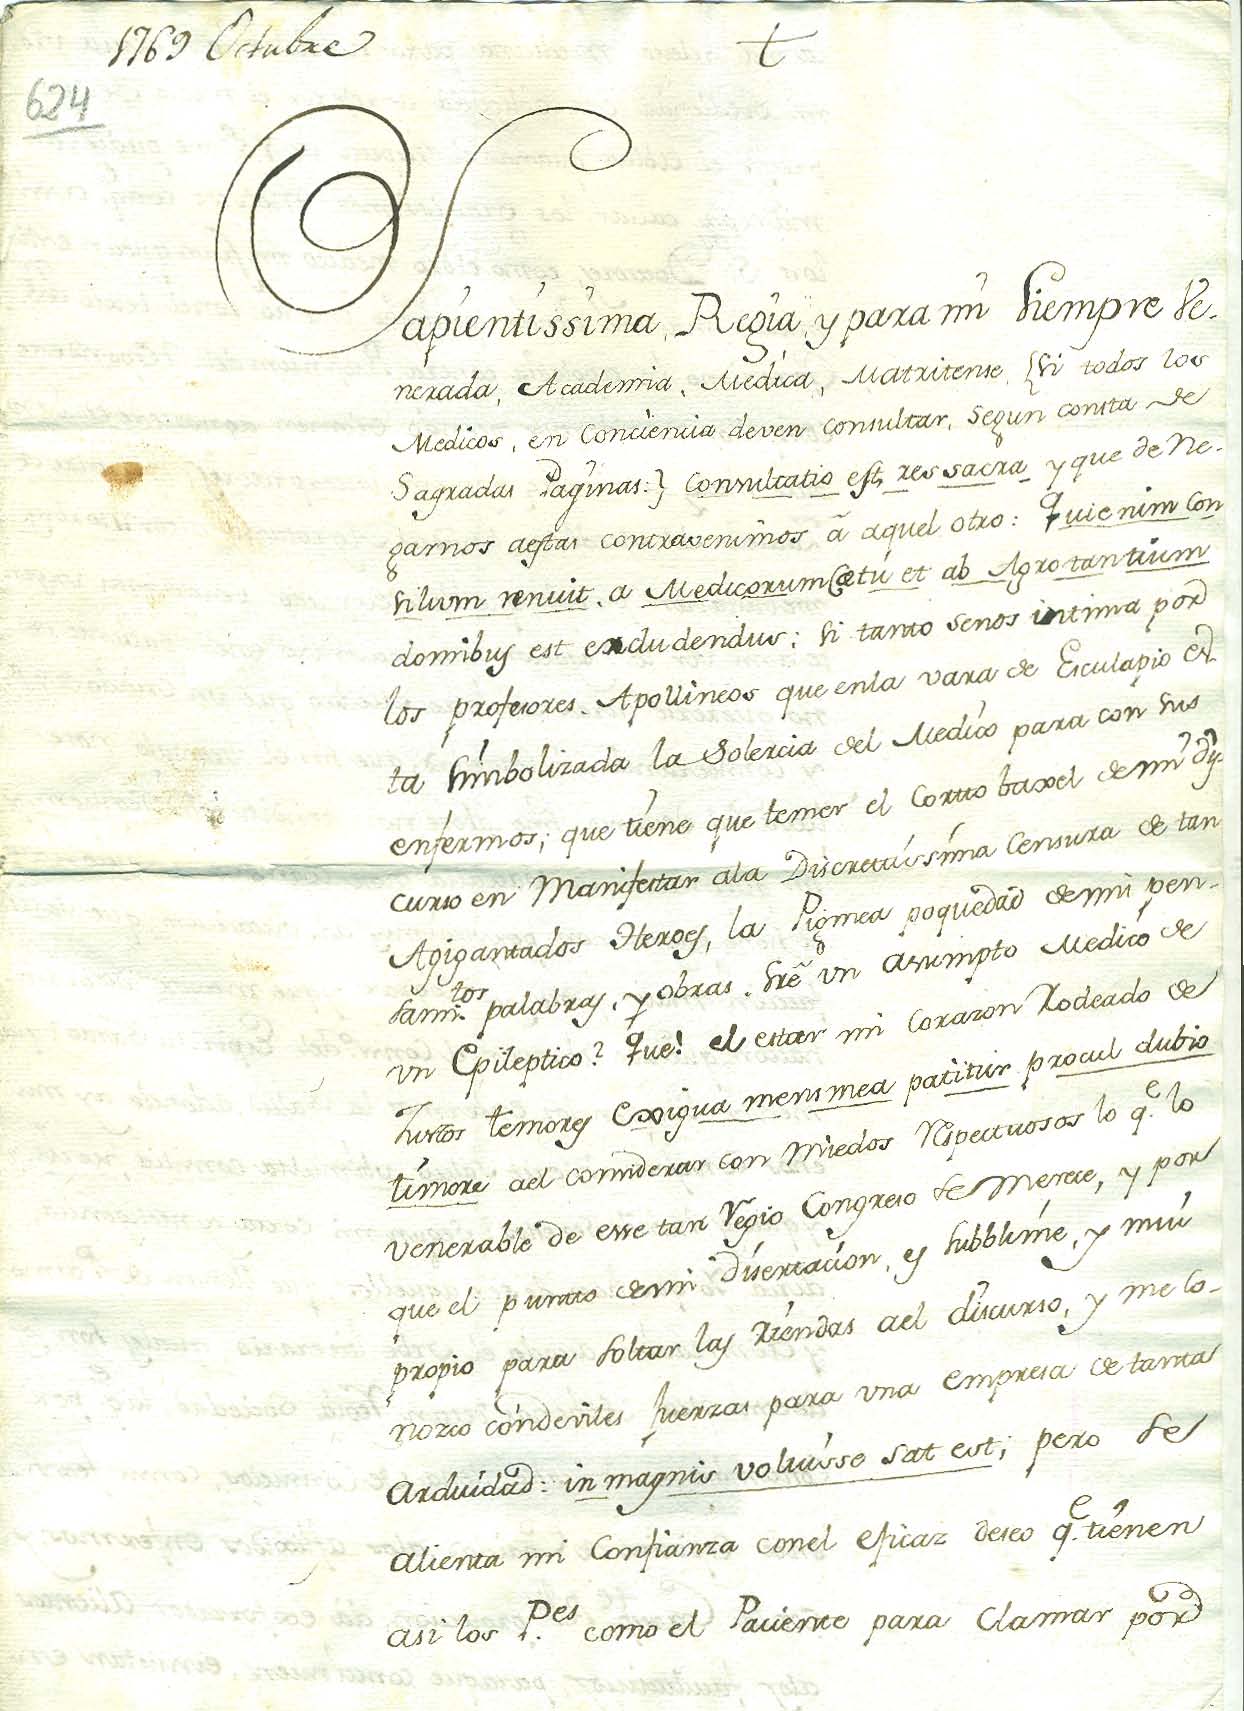 1769 Octubre
t
624
Sapientissima, Regia, y para mi siempre Ve-
nerada, Academia, Medica, Matritense, {si todos los
Medicos, en Conciencia deven consultar, segun consta de
Sagradas Paginas:} Consultatio est, res sacra y que de ne-
garnos aestas contravenimos â aquel otro: Qui enim con
silium renuit, a Medicorum Cœtu et ab Agrotantium
domibus est excludendus; si tanto senos intima por
los profesores, Apollineos que enla vara de Esculapio es-
ta simbolizada la Solercia del Medico para con sus
enfermos; que tiene que temer el Corto baxel de mi dis-
curso en Manifestar ala Discretissima Censura de tan
Agigantados Heroes, la Pigmea poquedad de mi pen-
sami.tos palabras, y obras, sre un asumpto Medico de
un Epileptico? Que! el estar mi Corazon Rodeado de
Justos temores Exigua mens mea patitur procul dubio
timore ael considerar con miedos Respectuosos lo q.e lo
venerable de esse tan Regio Congreso se Merece, y por
que el punto de mi disertacion, es subblime, y mui
propio para soltar las Riendas ael discurso, y me co-
nozco con deviles fuerzas para una empresa de tanta
Arduidad: in magnis voluisse sat est; pero se
alienta mi Confianza conel eficaz deseo q.e tienen
asi los P.es como el Paciente para Clamar por